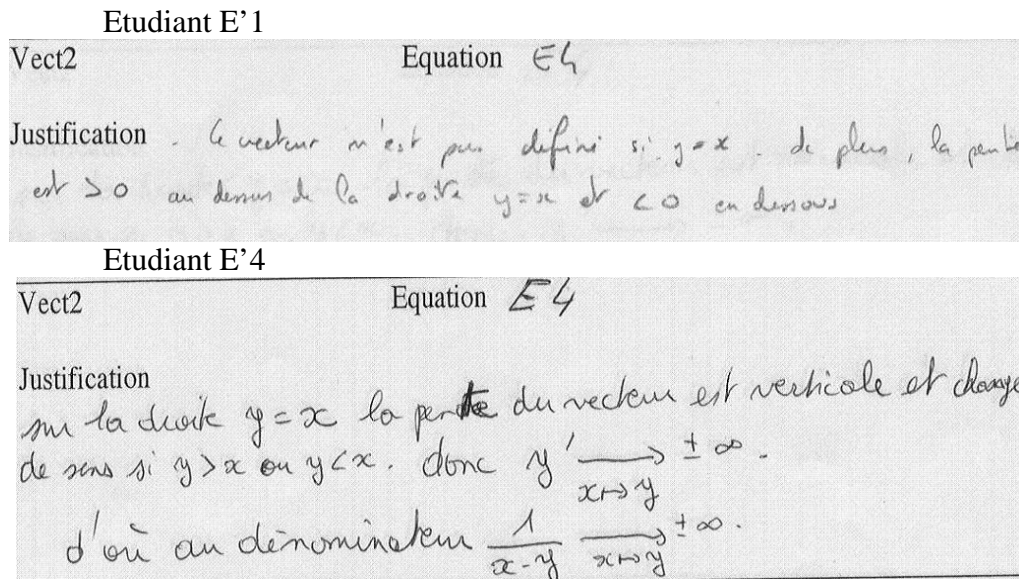 Etudiant E'1
Vect2 Equation E4
Justification . le vecteur n'est pas défini si y=x. de plus, la pente
est >0 au dessus de la droite y=x et <0 en dessous
Etudiant E'4
Vect2 Equation E4
Justification
sur la droite y=x la pente du vecteur est verticale et change
de sens si y>x ou y<x. donc y' → ± ∞.
x→y
d'où au dénominateur 1/(x-y) → ± ∞.
x→y